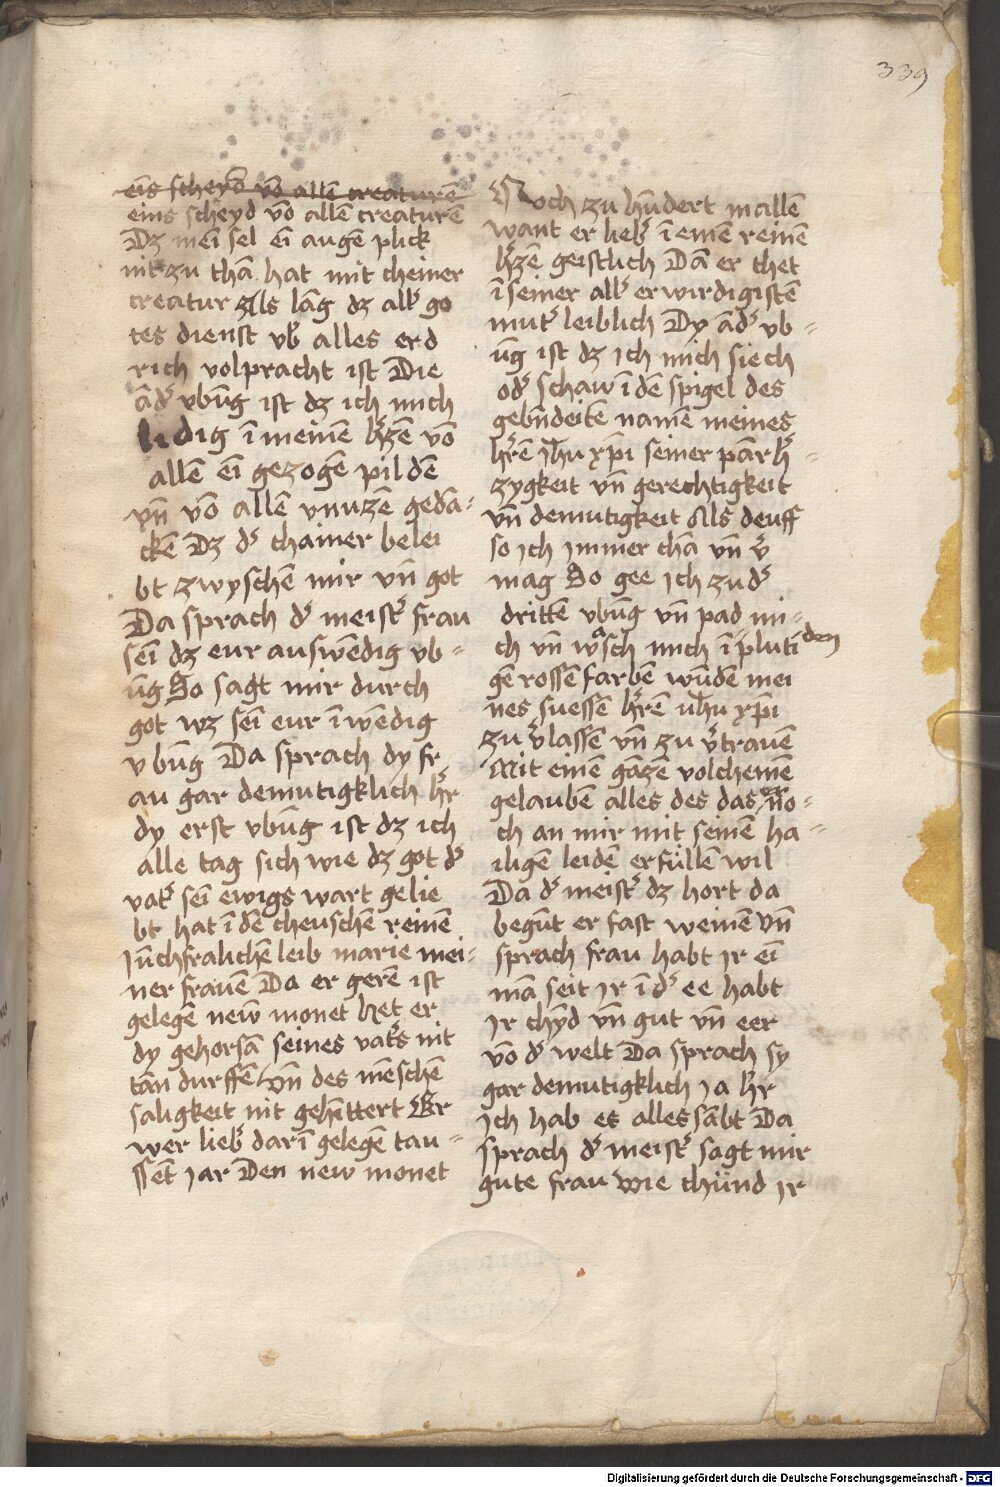 339
eīs scheyd vō allē creaturē
eins scheyd vō allē creaturē
Dz mei sel ei augē plick
nit zu thā hat mit cheiner
creatur Als lāg dz all' go
tes dienst vb' alles erd
rich volpracht ist Die
ād' vbūg ist dz ich mich
ledig ī meinē h'zē vō
allē ei gezogē pildē
vn̄ vō allē vnuzē gedā-
ckē Dz d' chainer belei
bt zwyschē mir vn̄ got
Da sprach d' meist' frau
seī dz eur auswēdig vb-
ūg So sagt mir durch
got wz seī eur īwēdig
vbūg Da sprach dy fr
au gar demutigklich h'r
dy erst vbūg ist dz ich
alle tag sich wie dz got d'
vat' seī ewigs wart gelie
bt hat ī dē cheuschē reinē
jūchfralichē leib marie mei-
ner frauē Da er gerē ist
gelegē new monet het er
dy gehorsā seines vat's nit
tān durffē vn̄ des mēschē
saligkeit nit gehīttert Er
wer lieb' darī gelegē tau-
ssēt jar Den new monet
Noch zu hūdert mallē
want er lieb' ī einē reinē
h'zē geistlich Dā er thet
ī seiner all' erwirdigistē
mut' leiblich Dy ād' vb-
ūg ist dz ich mich siech
od' schaw ī dē spigel des
gebn̄deitē namē meines
h'rē Jhu xp̄i seiner pārh'-
zygkeit vn̄ gerechtigkeit
vn̄ demutigkeit Als deuff
so ich jmmer chā vn̄ v'
mag So gee ich zu d'
drittē vbūg vn̄ pad mi-
ch vn̄ wasch mich ī pluti
den
gē rossē farbē wūdē mei
nes suessē h'rē Jhu xp̄i
zu v'lassē vn̄ zu v'trauē
Mit einē gāzē volchemē
gelaubē alles des das er no-
ch an mir mit seinē ha-
iligē leidē erfüllē wil
Da d' meist' dz hort da
begūt er fast weinē vn̄
sprach frau habt jr ei
mā seit jr ī d' ee habt
jr chīd vn̄ gut vn̄ eer
vō d' welt Da sprach sy
gar demutigklich ja h'r
ich hab es alles sābt Da
sprach d' meist' sagt mir
gute frau wie chünd jr
Digitalisierung gefördert durch die Deutsche Forschungsgemeinschaft - DFG